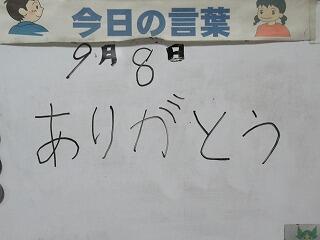 今日の言葉
9月8日
ありがとう